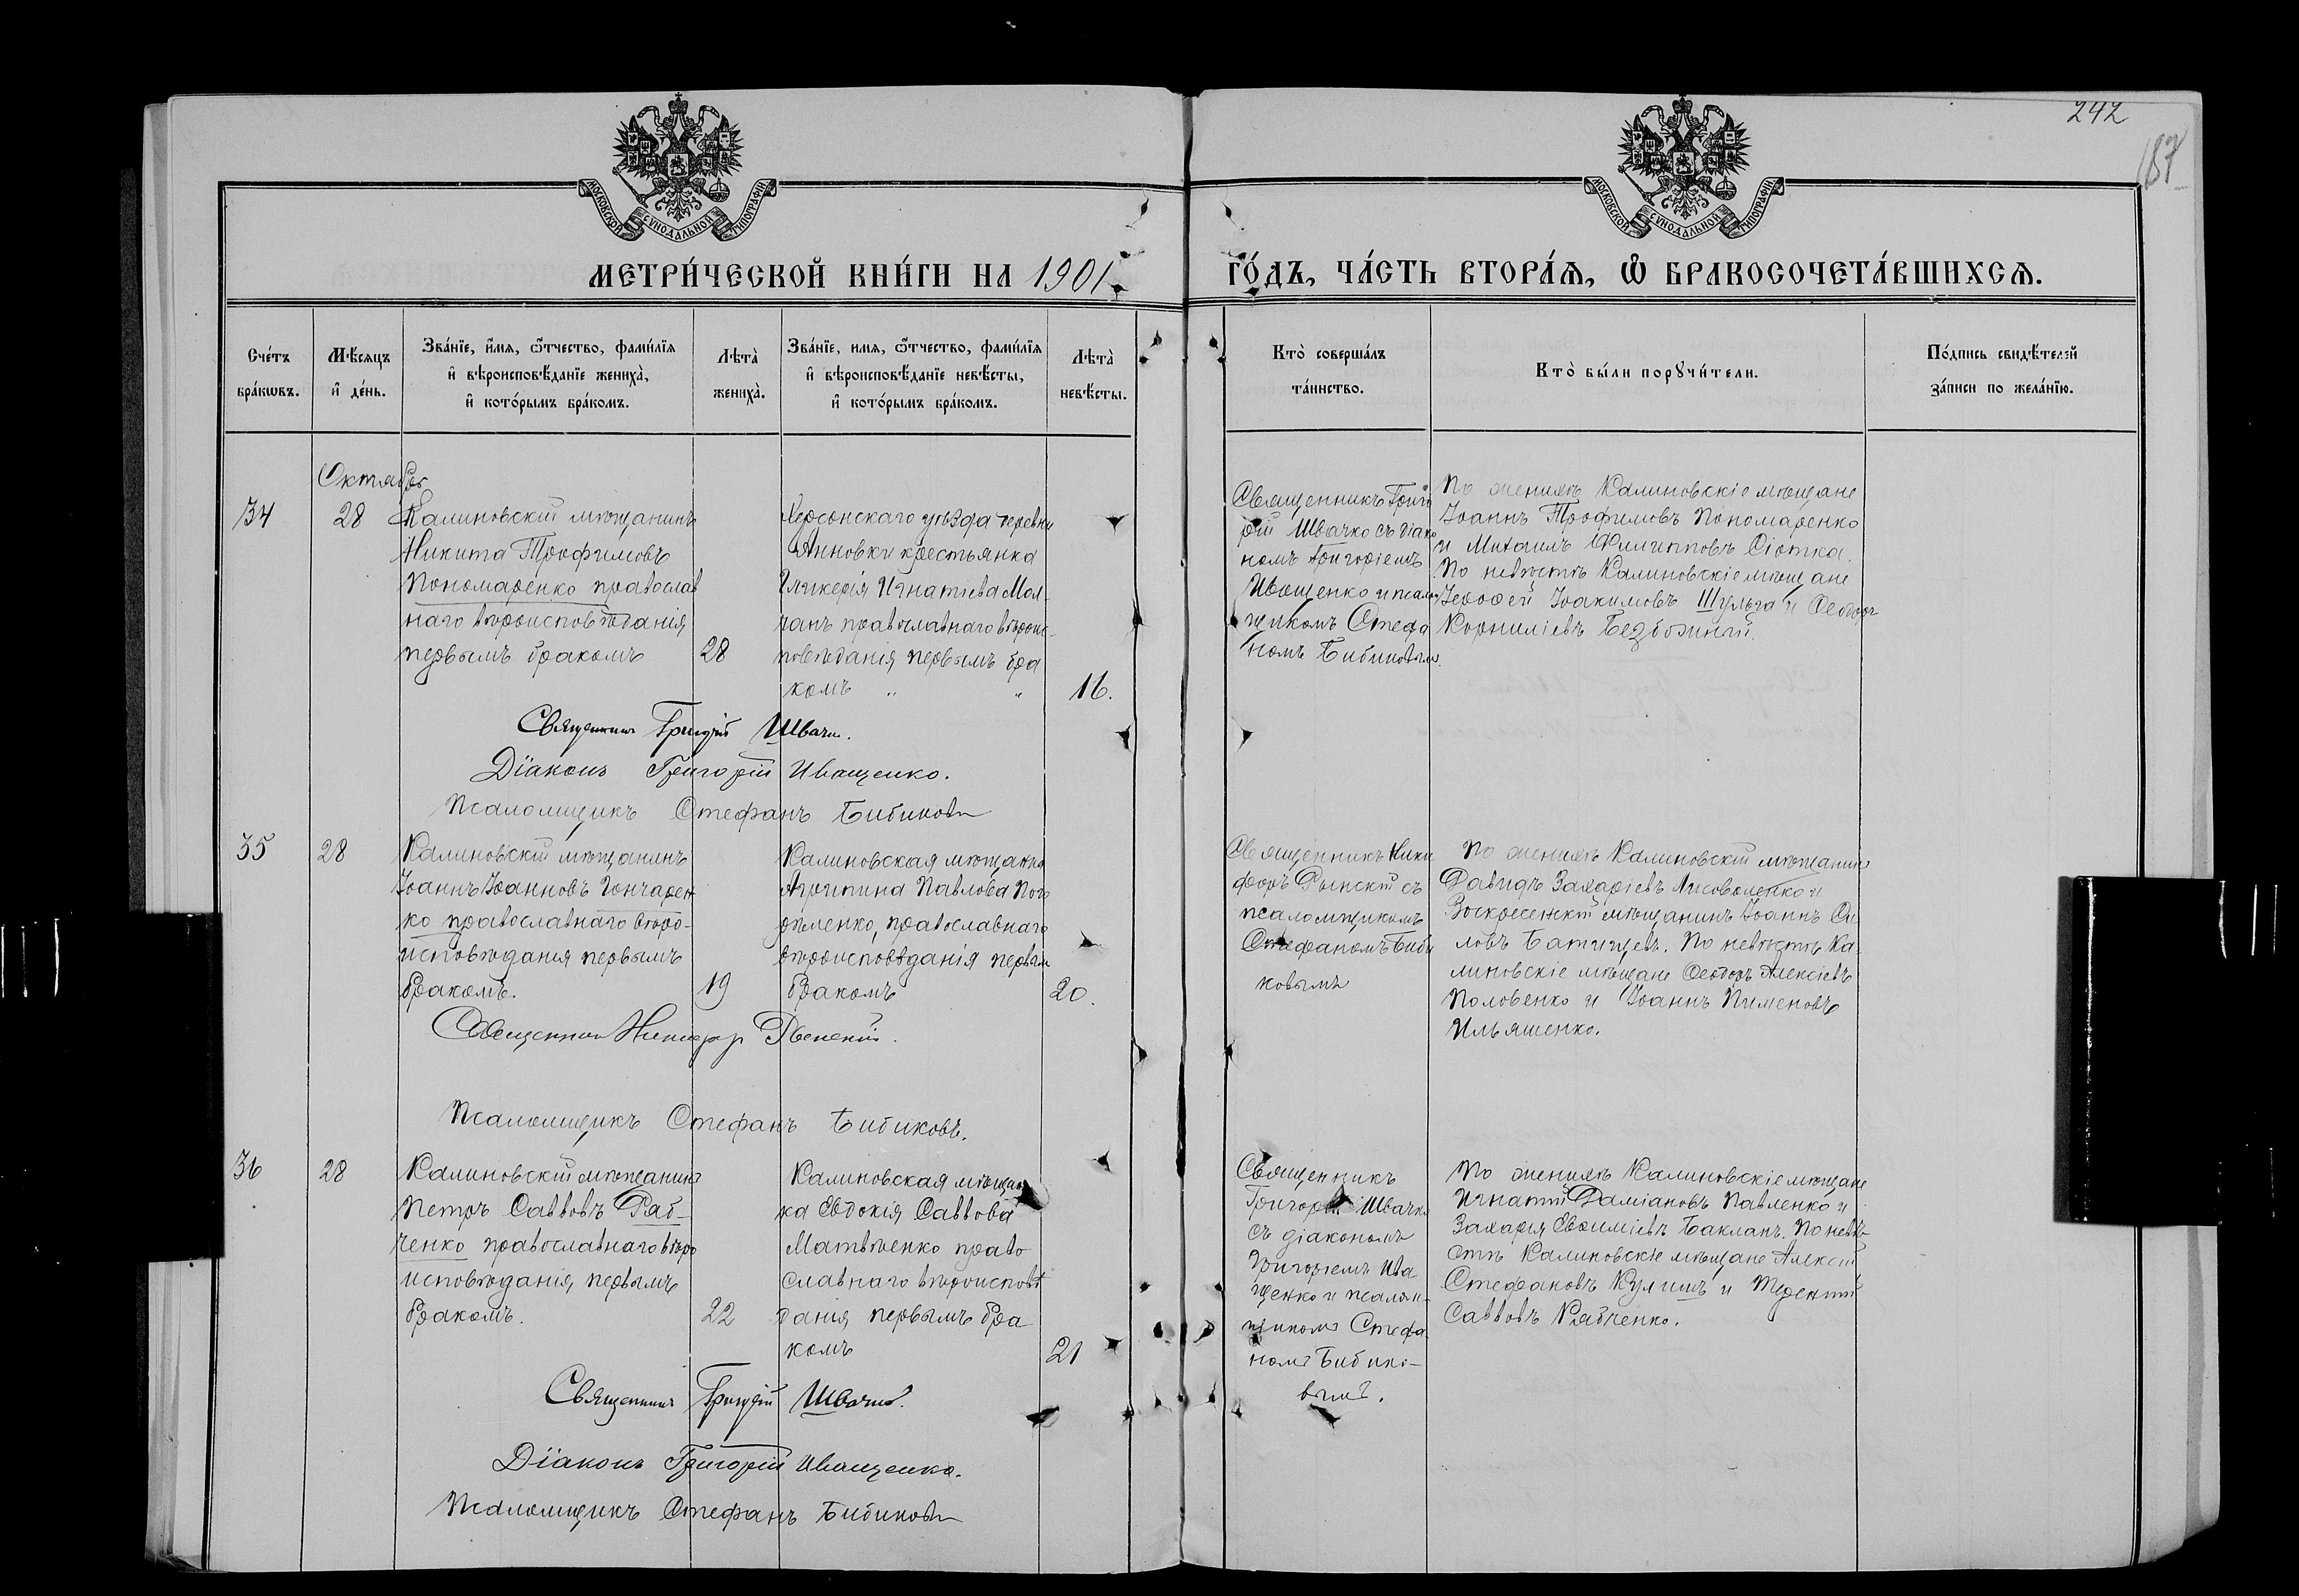 242
187
МОСКОВСКОЙ СУНОДАЛЬНОЙ ТИПОГРАФІИ
МОСКОВСКОЙ СУНОДАЛЬНОЙ ТИПОГРАФІИ
МЕТРИ́ЧЕСКОЙ КНИ́ГИ НА 1901
ГО́ДЪ, ЧА́СТЬ ВТОРА́Ѧ, Ѽ БРАКОСОЧЕТА́ВШИХСѦ.
Сче́тъ
бра́кѡвъ.
Мѣ́сяцъ
и҆ де́нь.
Зва́нїе, и҆́мѧ, ѻ҆́тчество, фами́лїѧ
и҆ вѣроисповѣ́данїе жениха̀,
и҆ кото́рымъ бра́комъ.
Лѣта̀
жениха̀.
Зва́нїе, имѧ, ѻ҆́тчество, фами́лїѧ
и҆ вѣроисповѣ́данїе невѣ́сты,
и҆ кото́рымъ бра́комъ.
Лѣта̀
невѣ́сты.
Кто̀ соверша́лъ
та́инство.
Кто̀ бы́ли порꙋчи́тели.
По́дпись свидѣ́телей
за́писи по жела́нїю.
Октябрь
34
28
Калиновскій мѣщанинъ
Никита Трофимовъ
Пономаренко православ
наго вѣроисповѣданія
первымъ бракомъ
28
Херсонскаго уѣзда деревни
Анновки крестьянка
Гликерія Игнатіева Мол-
чанъ православнаго вѣроис-
повѣданія первымъ бра
комъ „ „
16.
Священникъ Григо
рій Швачко съ діако
номъ Григоріемъ
Иващенко и псалом
щикомъ Стефа
номъ Бибиковымъ.
По женихѣ Калиновскіе мѣщане
Іоаннъ Трофимовъ Пономаренко
и Михаилъ Филипповъ Сіотка.
По невѣстѣ Калиновскіе мѣщане
Іерофей Іоакимовъ Шульга и Ѳеодоръ
Корниліевъ Безбожный.
Священникъ Григорій Швачко.
Діаконъ Григорій Иващенко.
Псаломщикъ Стефанъ Бибиковъ
35
28
Калиновскій мѣщанинъ
Іоаннъ Іоанновъ Гончарен
ко православнаго вѣро-
исповѣданія первымъ
бракомъ.
19
Калиновская мѣщанка
Агрипина Павлова Пого
рѣленко, православнаго
вѣроисповѣданія первым
бракомъ
20.
Священникъ Ники
форъ Рынскій съ
псаломщикомъ
Стефаномъ Биби
ковымъ
По женихѣ Калиновскій мѣщанинъ
Давидъ Захаріевъ Лисоволенко и
Воскресенскій мѣщанинъ Іоаннъ
ловъ Батищевъ. По невѣстѣ Ка-
линовскіе мѣщане Ѳеодоръ Алексіевъ
Половенко и Іоаннъ Пименовъ
Ильяшенко.
Священникъ Никифоръ
Псаломщикъ Стефанъ Бибиковъ.
36
28
Калиновскій мѣщанинъ
Петръ Саввовъ Раб-
ченко православнаго вѣро
исповѣданія первымъ
бракомъ.
22
Калиновская мѣщан
ка Евдокія Саввова
Матвѣенко право
славнаго вѣроисповѣ
данія первымъ бра
комъ
21
Священникъ
Григорій Швачко
съ діакономъ
Григоріемъ Ива
щенко и псалом-
щикомъ Стефа
номъ Бибико-
вымъ.
По женихѣ Калиновскіе мѣщане
Игнатій Даміановъ Павленко и
Захарія Евѳиміевъ Бакланъ. По невѣ-
стѣ Калиновскіе мѣщане Алексій
Стефановъ Кулишъ и Терентій
Саввовъ Рябченко.
Священникъ Григорій Швачко.
Діаконъ Григорій Иващенко.
Псаломщикъ Стефанъ Бибиковъ